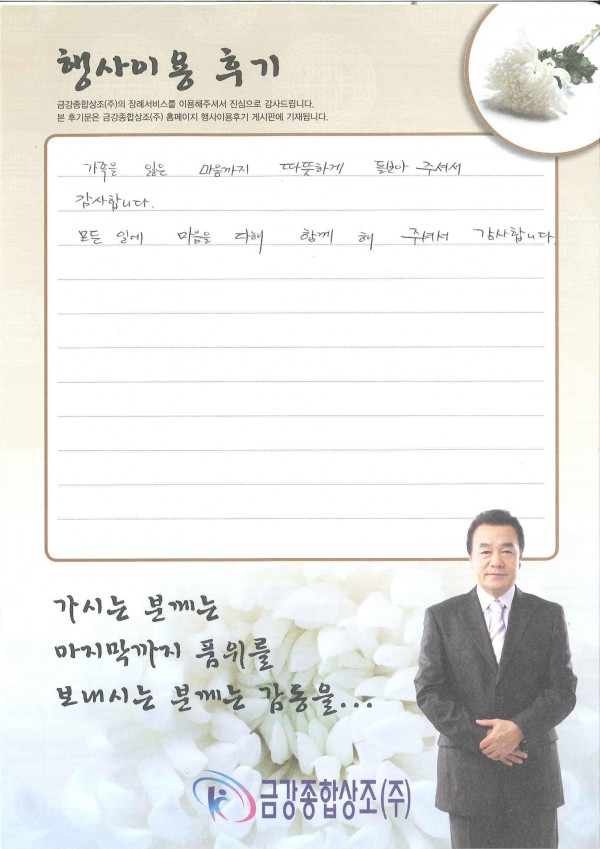 행사이용 후기
금강종합상조(주)의 장례서비스를 이용해주셔서 진심으로 감사드립니다.
본 후기문은 금강종합상조(주) 홈페이지 행사이용후기 게시판에 기재됩니다.
가족을 잃은 마음까지 따뜻하게 돌봐 주셔서
감사합니다.
모든 일에 마음을 다해 함께 해 주셔서 감사합니다.
가시는 분께는
마지막까지 품위를
보내시는 분께는 감동을...
금강종합상조(주)